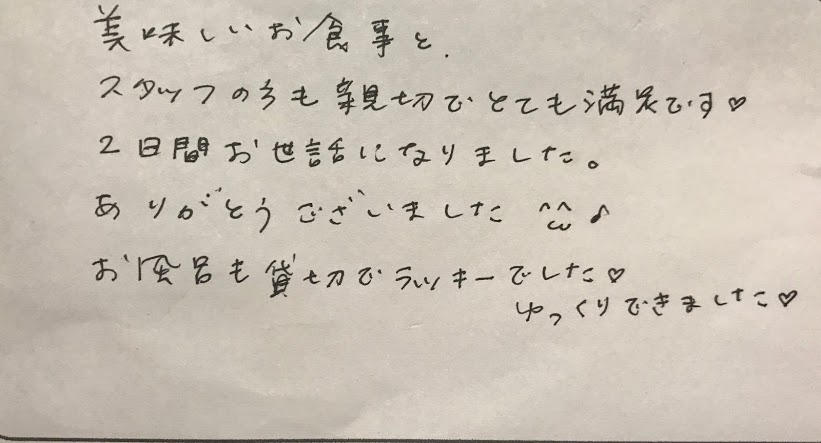 美味しいお食事と、
スタッフの方も親切でとても満足です♡
2日間お世話になりました。
ありがとうございました ^ω^ ♪
お風呂も貸切でラッキーでした♡
ゆっくりできました♡